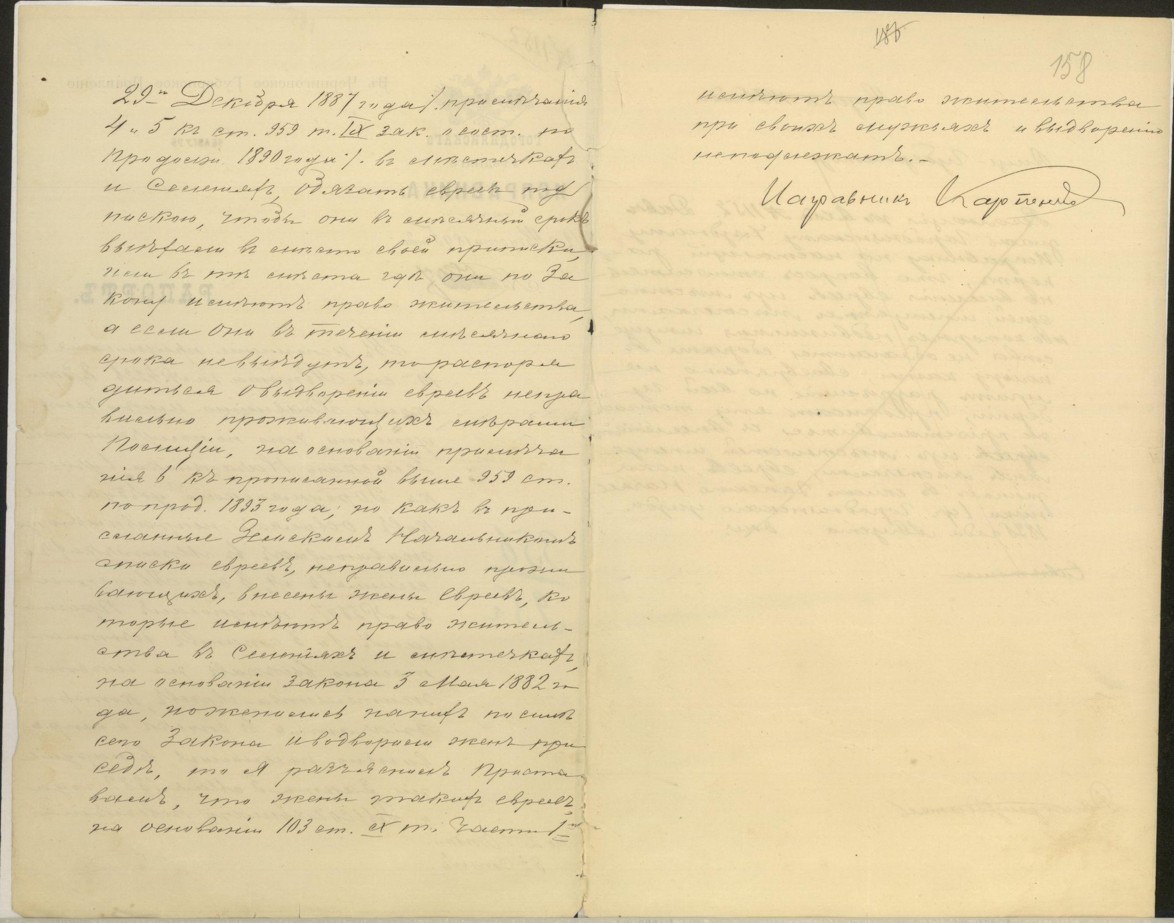 29го Декабря 1887 года /. примѣчанія
4 и 5 къ ст. 959 т. IX зак. о сост. по
Продолж. 1890 года /. въ мѣстечкахъ
и Селеніяхъ, обязать евреевъ под
пискою, чтобы они въ мѣсячный срокъ
выѣхали въ мѣсто своей приписки,
или въ тѣ мѣста гдѣ они по За
кону имѣютъ право жительства,
а если они въ теченіи мѣсячнаго
срока невыѣдутъ, то распоря
диться о выдвореніи евреевъ непра
вильно проживающихъ мѣрами
Полиціи, на основаніи примѣча
нія 6 къ прописанной выше 959 ст.
по прод. 1893 года; но какъ въ при-
сланные Земскимъ Начальникомъ
списки евреевъ, неправильно прожи
вающихъ, внесены жены Евреевъ, ко
торые имѣютъ право житель-
ства въ Селеніяхъ и мѣстечкахъ,
на основаніи закона 3 Мая 1882 го
да, поженились на нихъ послѣ
сего Закона и водворили женъ при
себѣ, то я разъяснилъ Приста
вамъ, что жены такихъ евреевъ,
на основаніи 103 ст. IX т. Части 1й
186
158
имѣютъ право жительства
при своихъ мужьяхъ и выдворенію
неподлежатъ.-
Исправникъ Карпенко